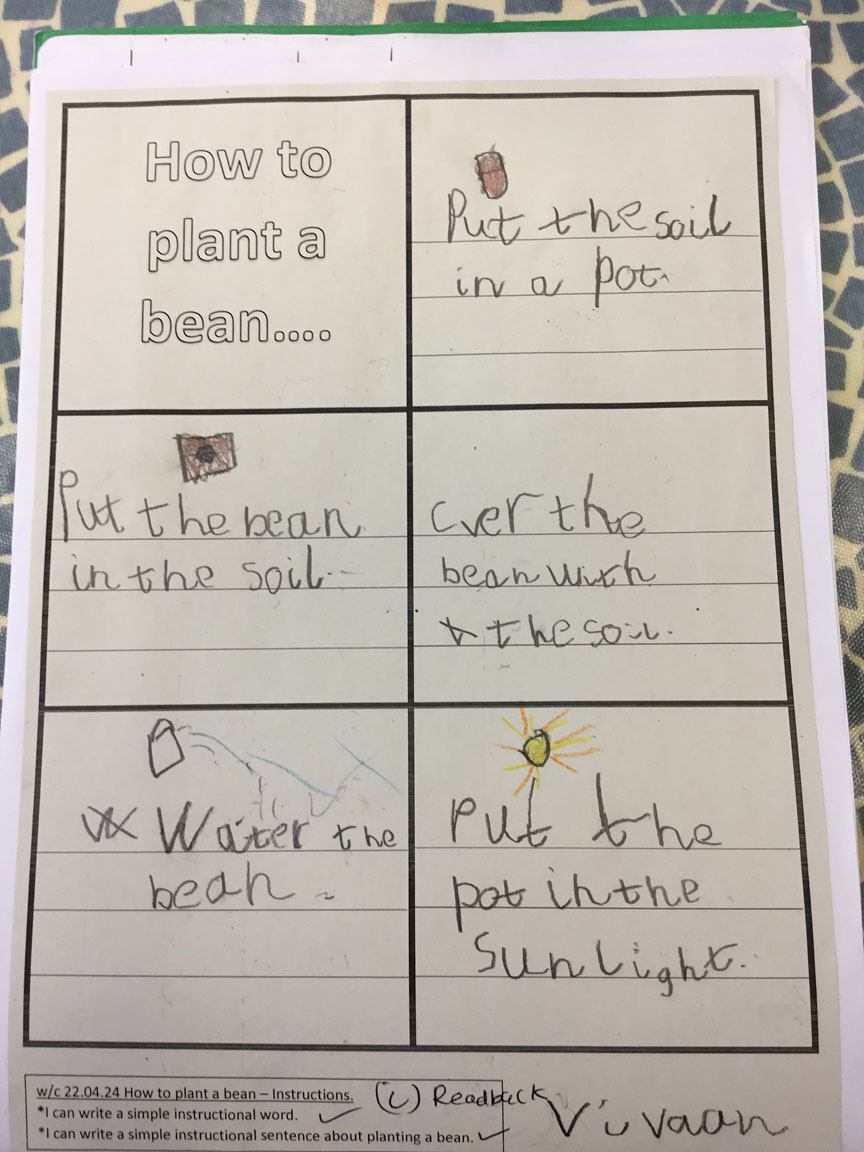 How to
plant a
bean....
Put the soil
in a pot.
Put the bean
in the soil.
cver the
bean with
the soil.
Water the
bean.
Put the
pot in the
sun light.
w/c 22.04.24 How to plant a bean – Instructions.
*I can write a simple instructional word.
*I can write a simple instructional sentence about planting a bean.
Readback
Vivaan